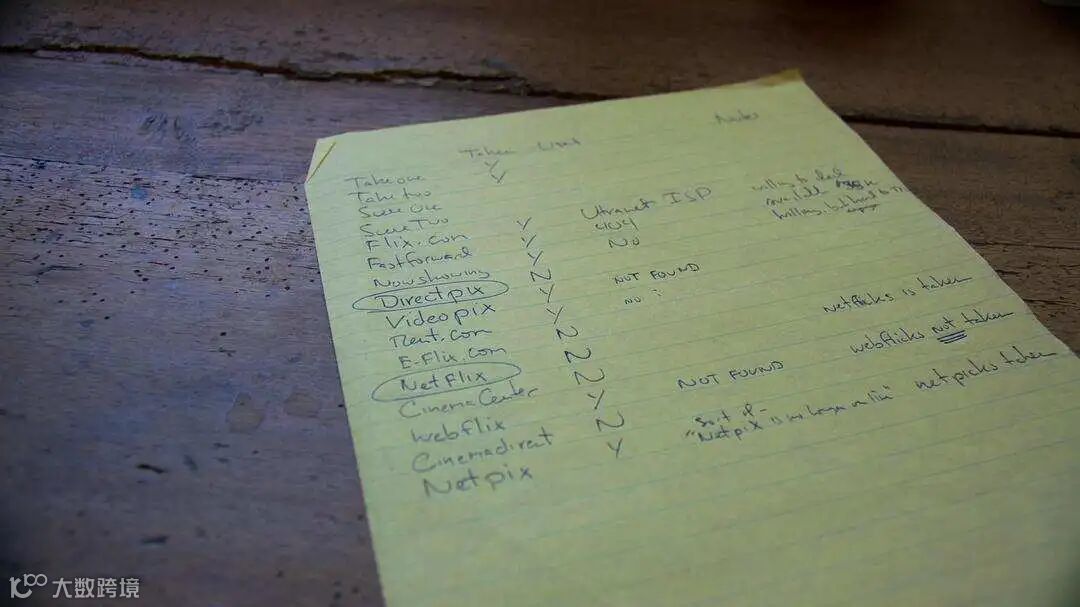 Taken Used Notes
Takeone Y
Take two Y
Scene One
Scene Two
Flix.com Y Utranet ISP willing to deal
Fastforward Y 404
Nowshowing Y No
Directpix N
Videopix Y NOT FOUND
Rent.com Y no
E-Flix.com N
NetFlix N netflicks is taken
CinemaCenter N
Webflix Y NOT FOUND webflicks not taken
Cinemadirect N
Netpix Y "sort of- Netpix is no longer on line" netpicks taken
大数跨境